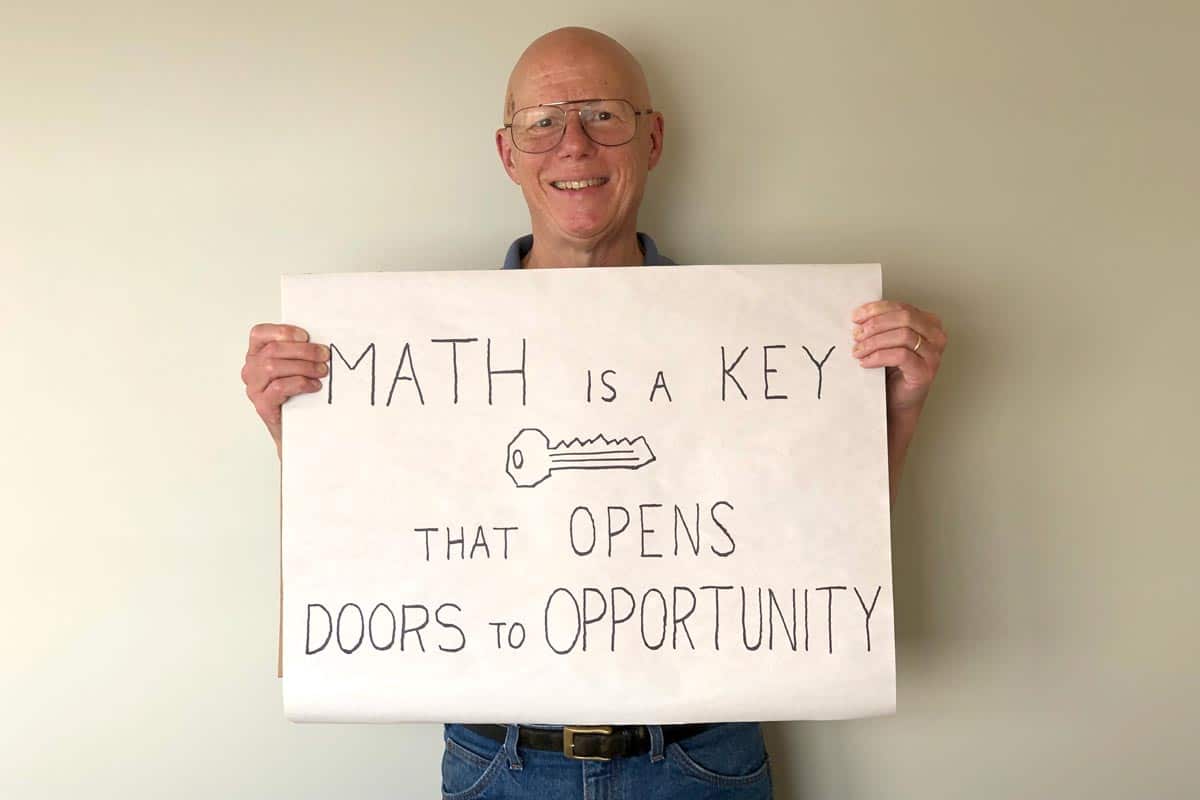 MATH IS A KEY
THAT OPENS
DOORS TO OPPORTUNITY